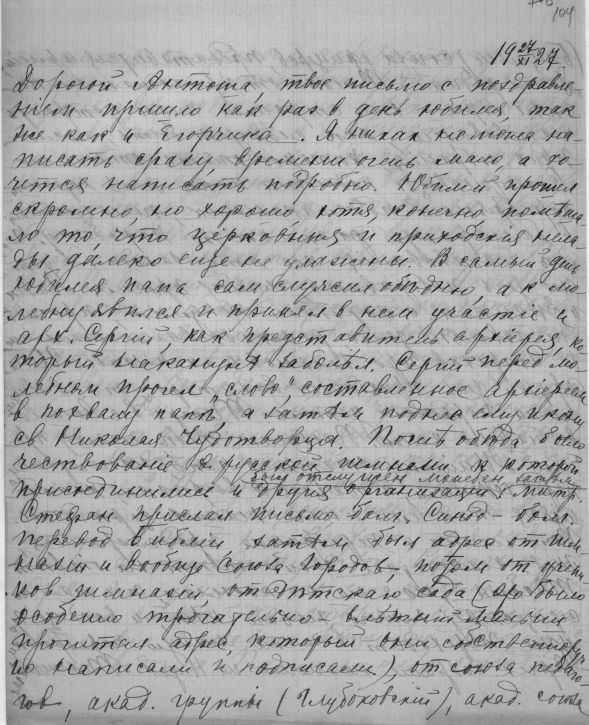 104
19 27/XI 27
Дорогой Антоша, твое письмо с поздравле-
нiем пришло как раз в день юбилея, так
же как и Егорчика. Я никак не могла на-
писать сразу, времени очень мало, а хо-
чется написать подробно. Юбилей прошел
скромно, но хорошо хотя, конечно помѣша-
ло то, что церковныя и приходскiя нела-
ды далеко еще не улажены. В самый день
юбилея папа сам служил обѣдню, а к мо-
лебну явился и принял в нем участiе и
арх. Сергiй как представитель архiерея, ко-
торый накануне заболѣл. Сергiй перед мо-
лебном прочел „слово", составленное архiереем
в похвалу папѣ, а затѣм поднес ему икону
св Николая Чудотворца. Послѣ обѣда было
чествованiе в русской гимназiи к которой
был отслужен молебен, затѣм
присоединились и другiя организацiи: митр.
Стефан прислал письмо болг. Синод - болг.
перевод библiи затѣм был адрес от гим-
назiи и вообще Союза Городов, потом от учени-
ков гимназiи, от дѣтскаго сада (это было
особенно трогательно - 8 лѣтнiй мальчик
прочитал адрес, который они собственноруч-
но написали и подписали), от союза педаго-
гов, акад. группы (Глубоковскiй), акад. союза